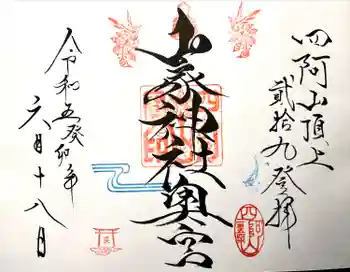 四阿山頂上
弐拾九登拝
山家神社奥宮
令和五癸卯年
六月十八日